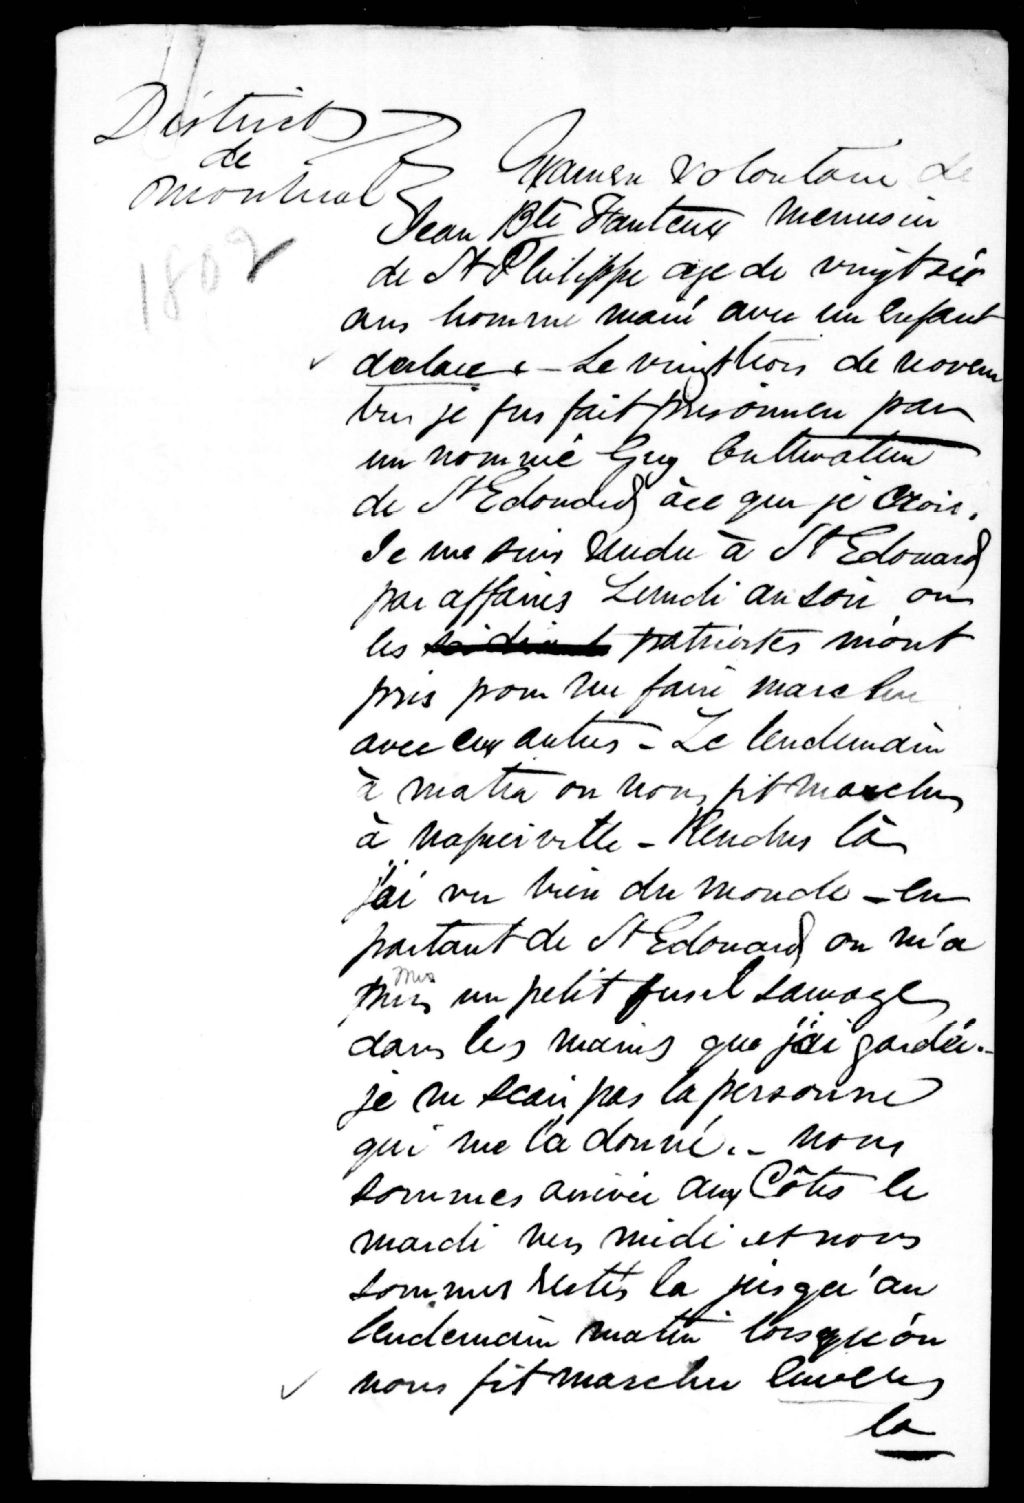 District
de
Montreal
1802
Examen volontaire de
Jean Bte Fauteux Menusier
de St Philippe age de vingt six
ans homme marié avec un enfant
declare + - Le vingt trois de novem
bre je fus fait prisonnier par
un nommé Guy Cultivateur
de St Edouard à ce que je crois.
Je me suis rendu à St Edouard
par affaires Lundi au soir on
les patriotes m'ont
pris pour me faire marcher
avec eux autres - Le lendemain
à matin on nous fit marcher
à napierville - Rendus là
j'ai vu bien du monde - en
partant de St Edouard on m'a
mis
mis un petit fusil sauvage
dans les mains que j'ai gardé.-
je ne scais pas la personne
qui me l'a donné. - nous
sommes arrivée aux Côtes le
mardi vers midi et nous
sommes restés la jusqu'au
lendemain matin lorsqu'on
nous fit marcher envers
la